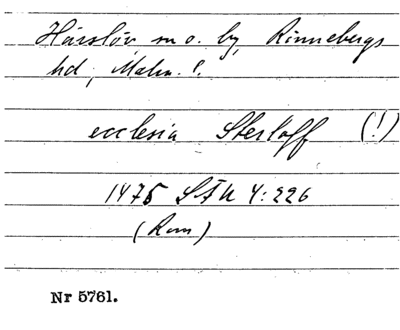 Härslöv, sn o. by, Rönnebergs
hd, Malm. l.
ecclesia Sterloff (!)
1475 SFH 4:226
(Rom)
Nr 5761.